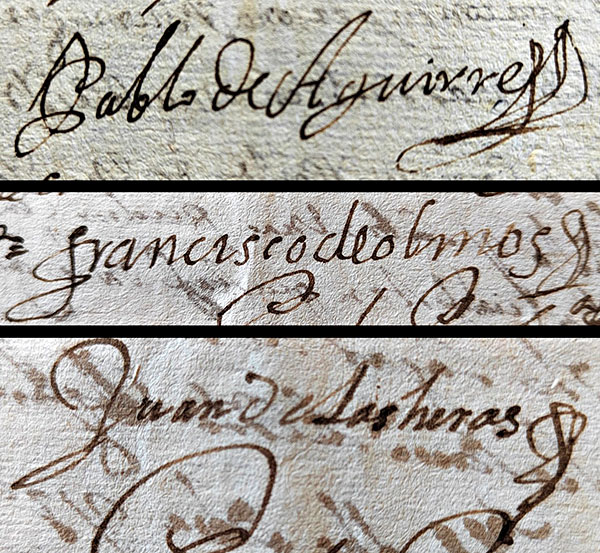 Pablo de Aguirre
francisco de olmos
Juan de las heras